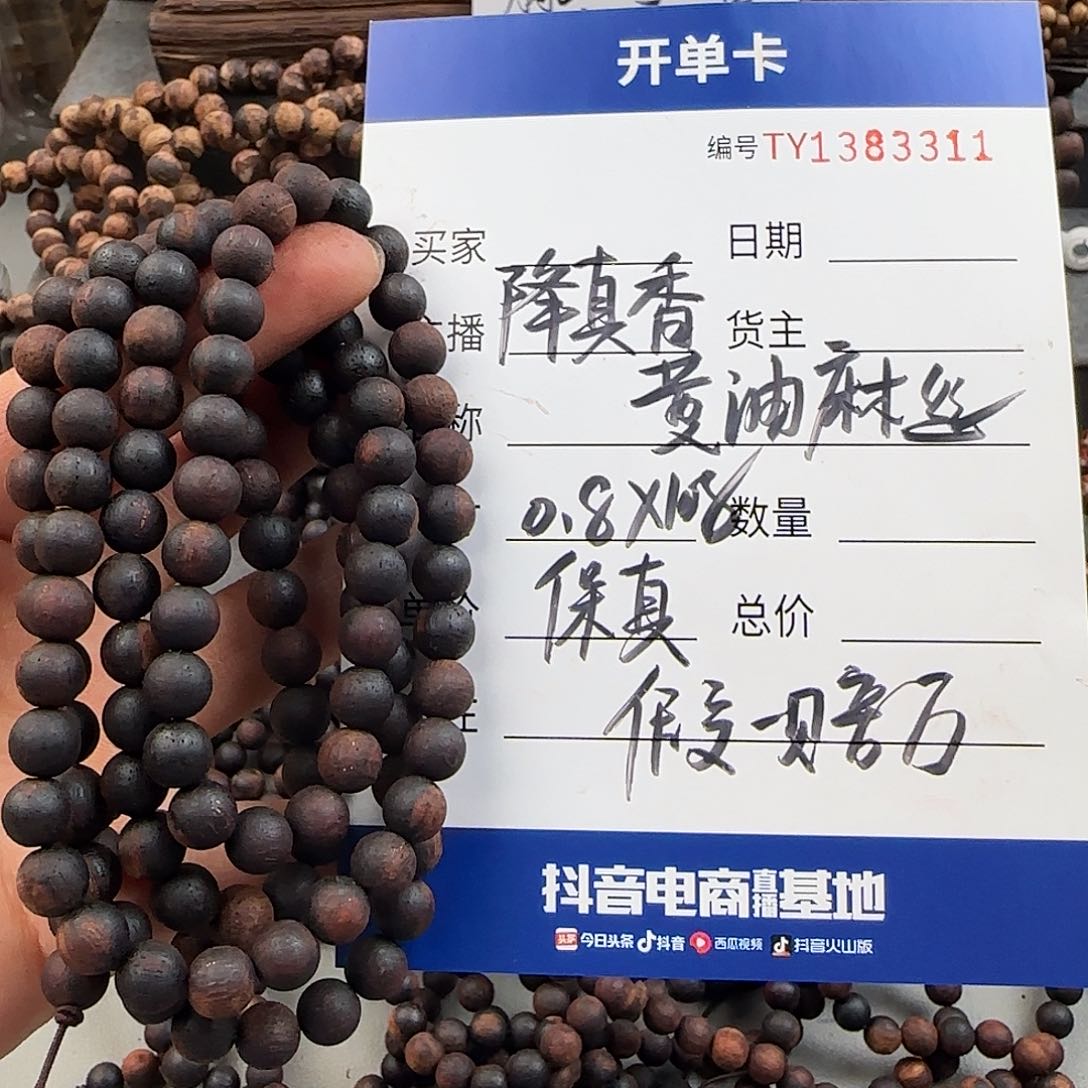 开单卡
编号TY1383311
买家 日期
播 降真香 货主
称 黄油麻丝
0.8X108 数量
保真 总价
假一赔万
抖音电商直播基地
头条 今日头条 抖音 西瓜视频 抖音火山版